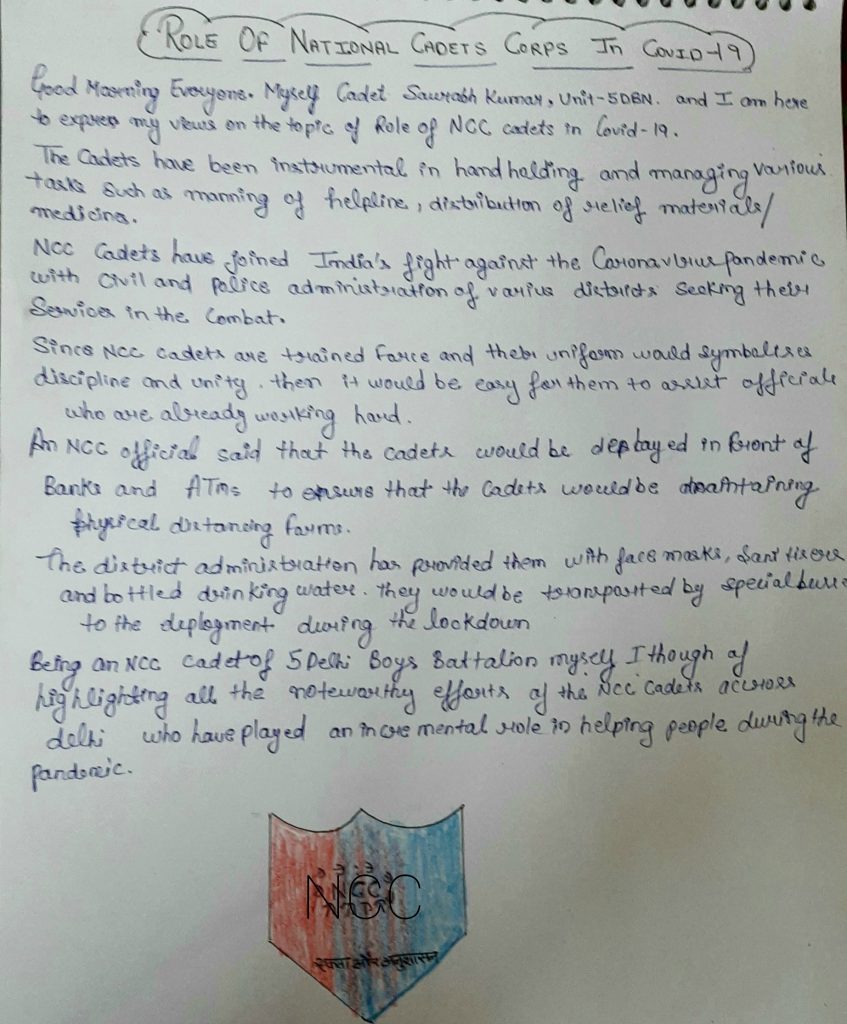 ROLE OF NATIONAL CADETS CORPS IN COVID-19
Good Morning Everyone. Myself Cadet Saurabh Kumar, Unit-5DBN. and I am here
to express my views on the topic of Role of NCC cadets in Covid-19.
The Cadets have been instrumental in hand holding and managing various
tasks such as manning of helpline, distribution of relief materials/
medicine.
NCC Cadets have joined India's fight against the Coronavirus pandemic
with Civil and police administration of varius districts seeking their
Services in the Combat.
Since NCC cadets are trained Force and their uniform would symbolises
discipline and unity. then it would be easy for them to assist officials
who are already working hard.
An NCC official said that the cadets would be deployed in front of
Banks and ATMs to ensure that the Cadets would be maintaining
physical distancing farms.
The district administration has provided them with face masks, Sanitisers
and bottled drinking water. they would be transported by special buses
to the deployment during the lockdown
Being an NCC cadet of 5 Delhi Boys Battalion myself I though of
highlighting all the noteworthy efforts of the NCC Cadets accross
delhi who have played an incremental role in helping people during the
pandemic.
NCC
एकता और अनुशासन